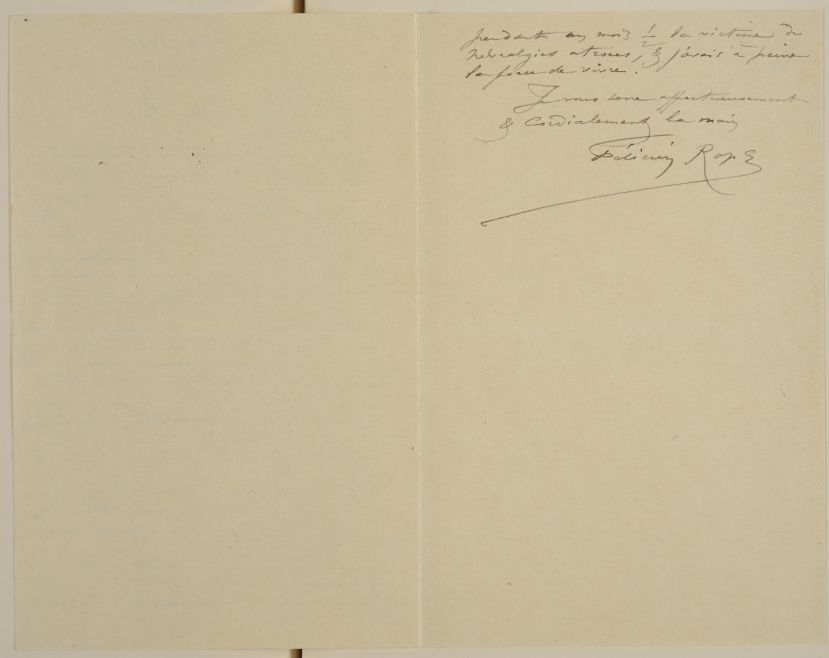 pendant un mois 1/2 la victime de
névralgies atroces, & j'avais à peine
la force de vivre.
Je vous serre affectueusement
& cordialement la main
Félicien Rops